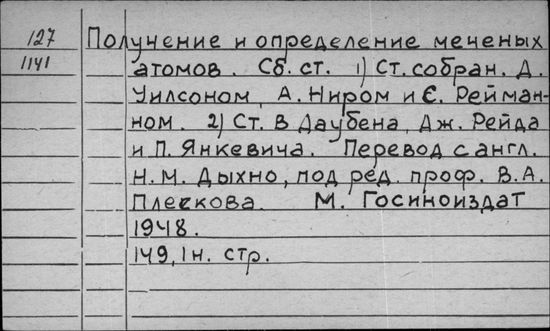 127 Получение и определение меченых
1141 атомов. Сб. ст. 1) Ст. собран. Д.
Уилсоном, А. Ниром и Є. Рейман-
ном. 2) Ст. В Даубена, Дж. Рейда
и П. Янкевича. Перевод с англ.
Н. М. Дыхно, под ред. проф. В. А.
Плескова. М. Госиноиздат
1948.
149, 1 н. стр.